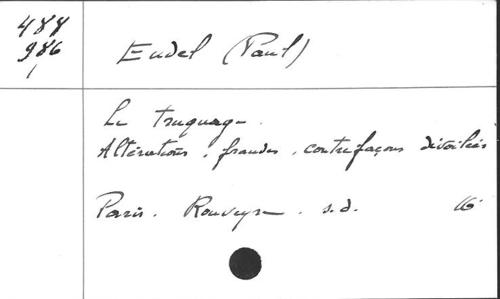 488
986
1
Eudel (Paul)
Le truquage.
Altérations, fraudes, contrefaçons dévoilées
Paris. Rouveyre. s.d. 16°